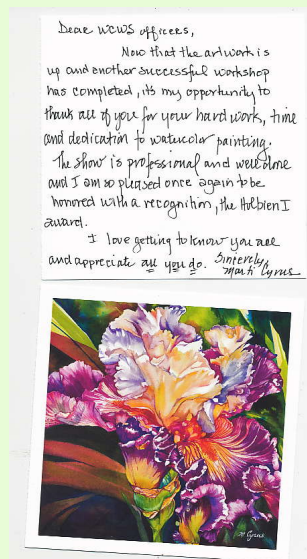 Dear WCWS officers,
Now that the artwork is
up and another successful workshop
has completed, its my opportunity to
thank all of you for your hard work, time
and dedication to watercolor painting.
The show is professional and well done
and I am so pleased once again to be
honored with a recognition, the Holbien I
award.
I love getting to know you all
and appreciate all you do. Sincerely,
Marti Cyrus
M Cyrus